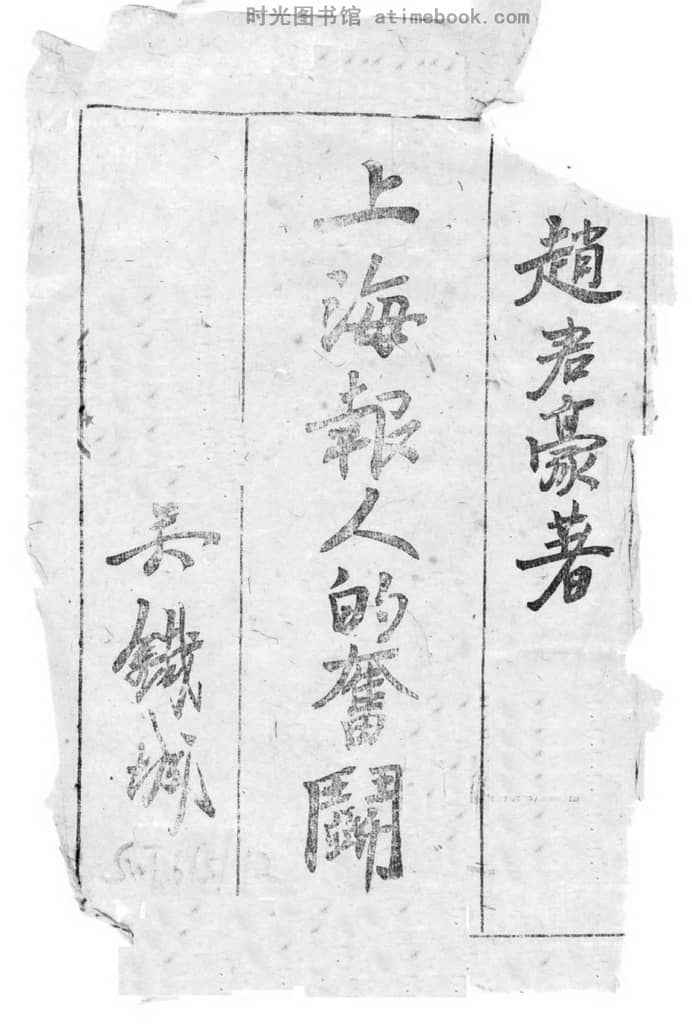 时光图书馆 atimebook.com
趙君豪著
上海報人的奮鬬
吳鐵城